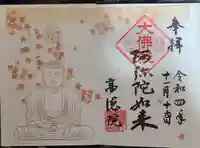 奉拝
令和四年
十一月十六日
大佛
阿弥陀如来
高徳院